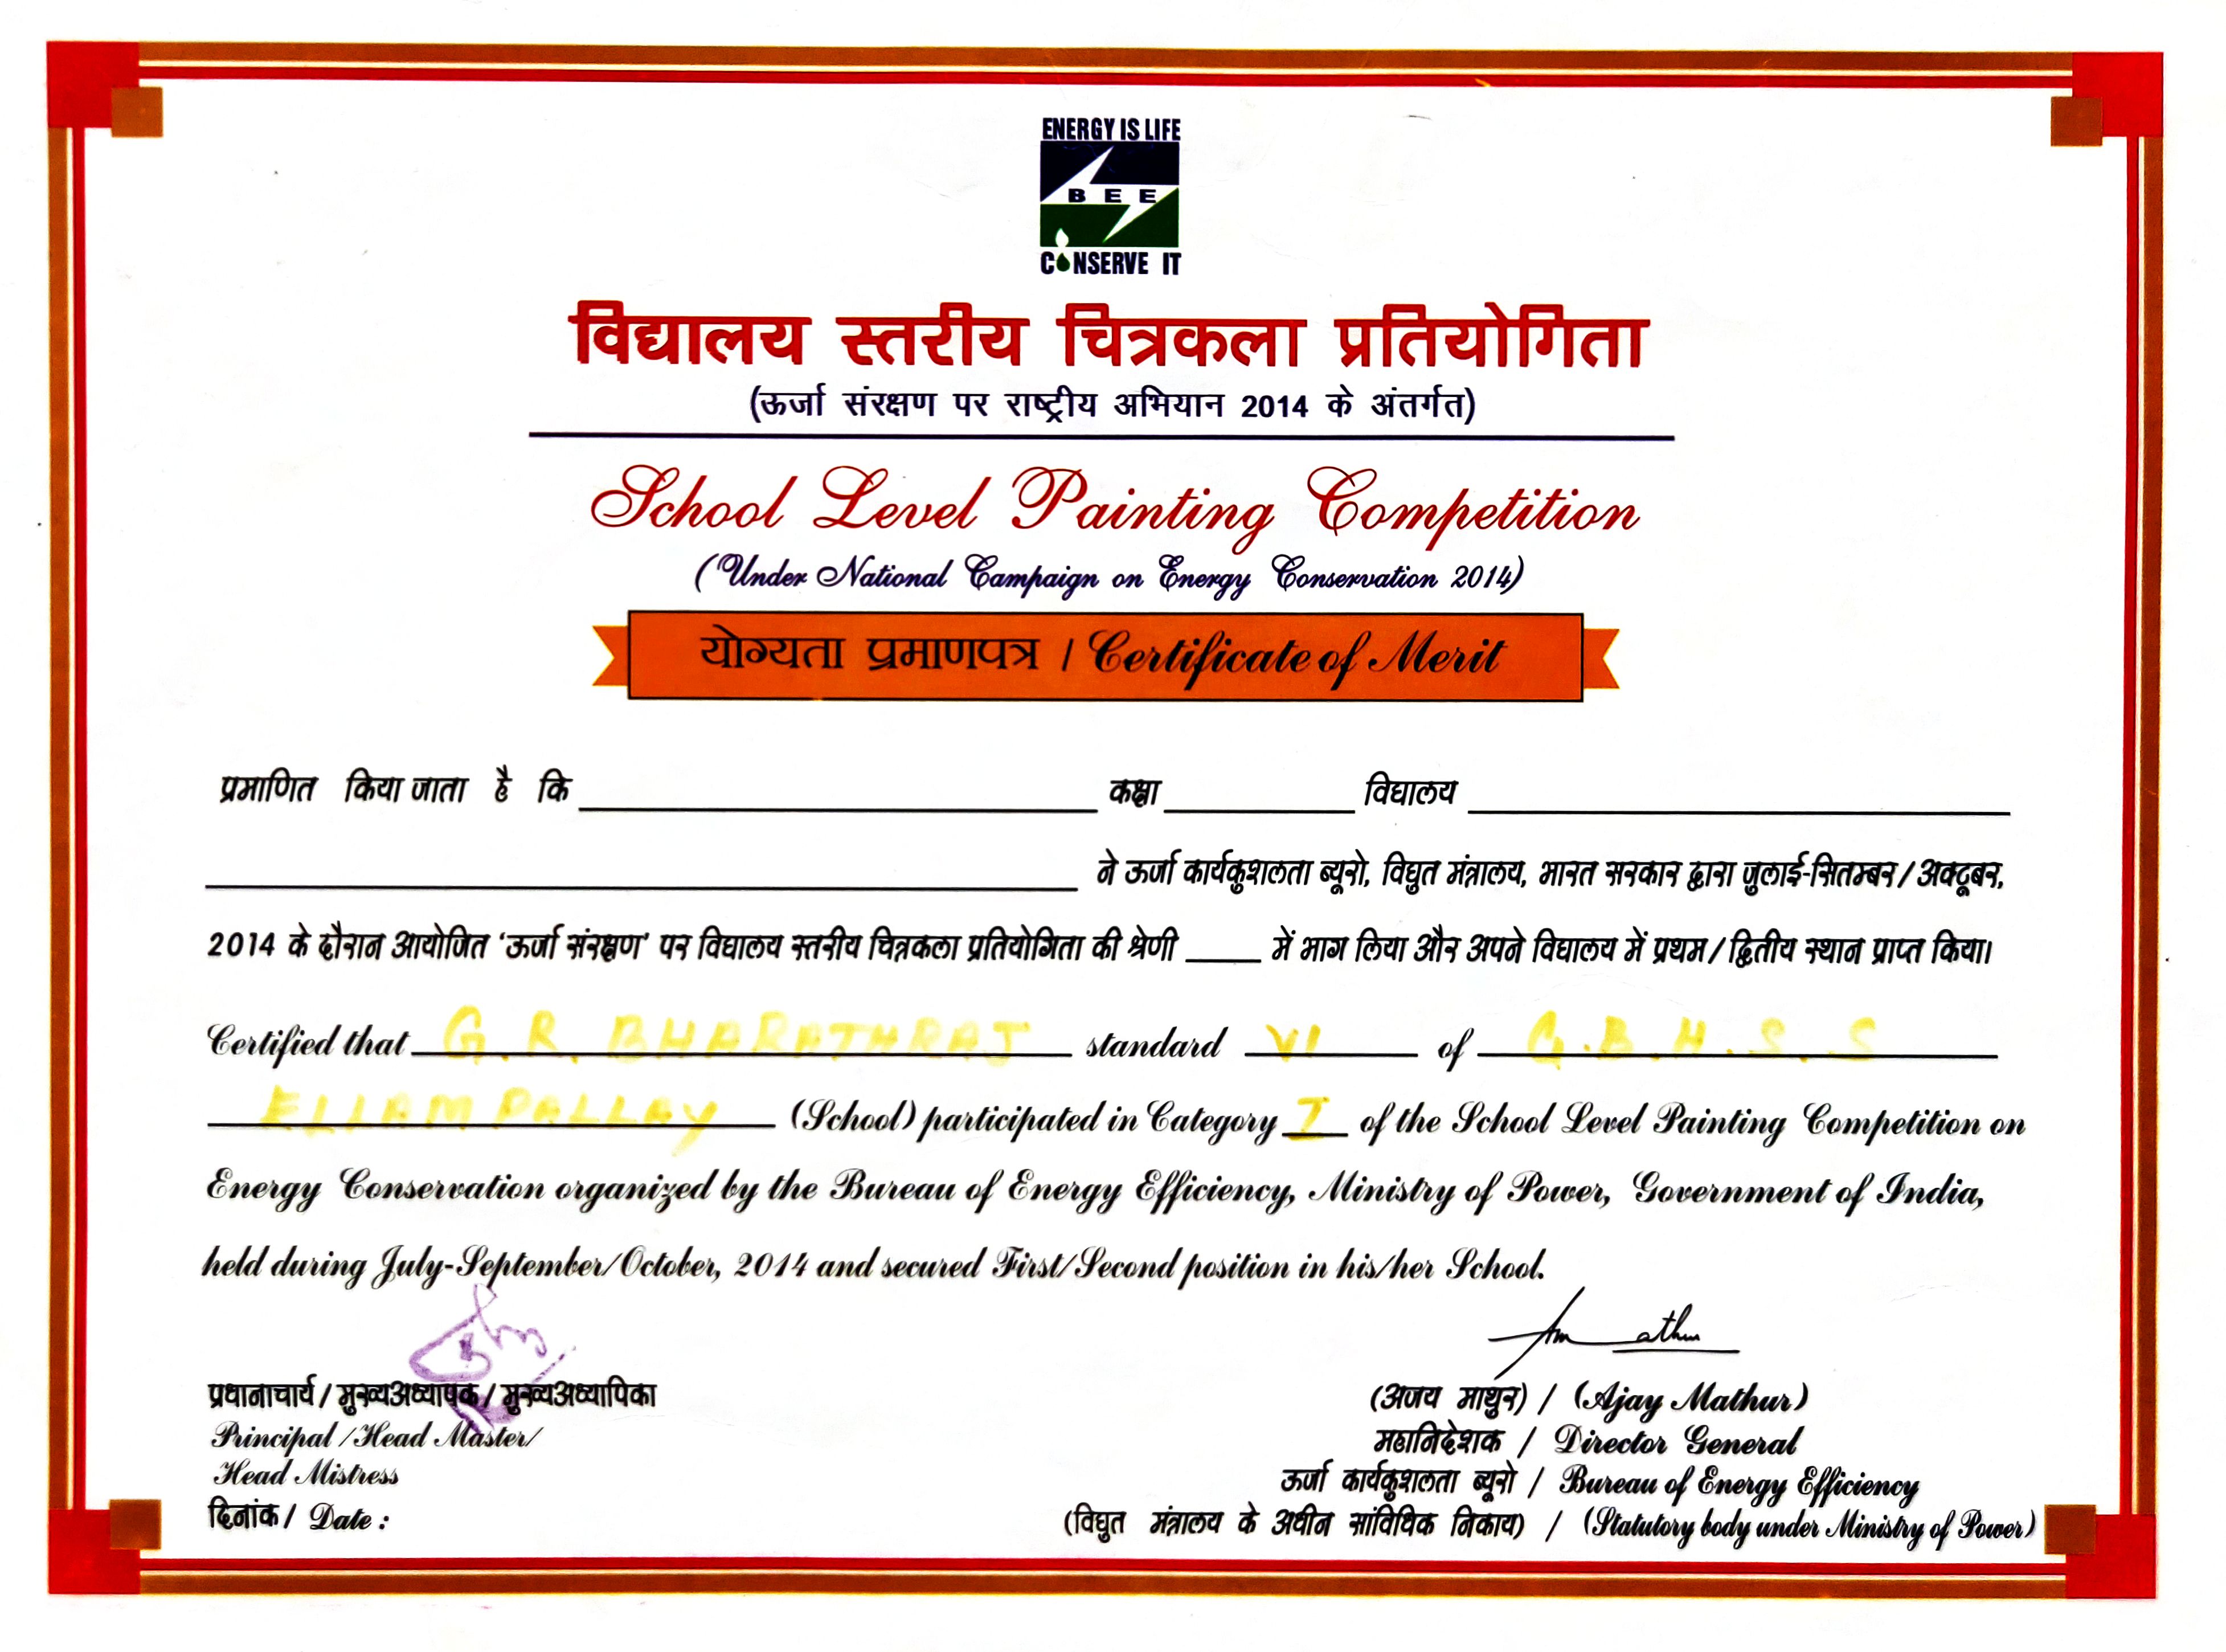 ENERGY IS LIFE
BEE
CONSERVE IT
विद्यालय स्तरीय चित्रकला प्रतियोगिता
(ऊर्जा संरक्षण पर राष्ट्रीय अभियान 2014 के अंतर्गत)
School Level Painting Competition
(Under National Campaign on Energy Conservation 2014)
योग्यता प्रमाणपत्र / Certificate of Merit
प्रमाणित किया जाता है कि कक्षा विद्यालय
ने ऊर्जा कार्यकुशलता ब्यूरो, विद्युत मंत्रालय, भारत सरकार द्वारा जुलाई-सितम्बर / अक्टूबर,
2014 के दौरान आयोजित ‘ऊर्जा संरक्षण’ पर विद्यालय स्तरीय चित्रकला प्रतियोगिता की श्रेणी में भाग लिया और अपने विद्यालय में प्रथम / द्वितीय स्थान प्राप्त किया।
Certified that G. R. BHARATHRAJ standard VI of G.B.H.S.S
ELLAMPALLAY (School) participated in Category I of the School Level Painting Competition on
Energy Conservation organized by the Bureau of Energy Efficiency, Ministry of Power, Government of India,
held during July-September/October, 2014 and secured First/Second position in his/her School.
प्रधानाचार्य / मुख्यअध्यापक / मुख्यअध्यापिका
Principal /Head Master/
Head Mistress
दिनांक / Date :
(अजय माथुर) / (Ajay Mathur)
महानिदेशक / Director General
ऊर्जा कार्यकुशलता ब्यूरो / Bureau of Energy Efficiency
(विद्युत मंत्रालय के अधीन सांविधिक निकाय) / (Statutory body under Ministry of Power)